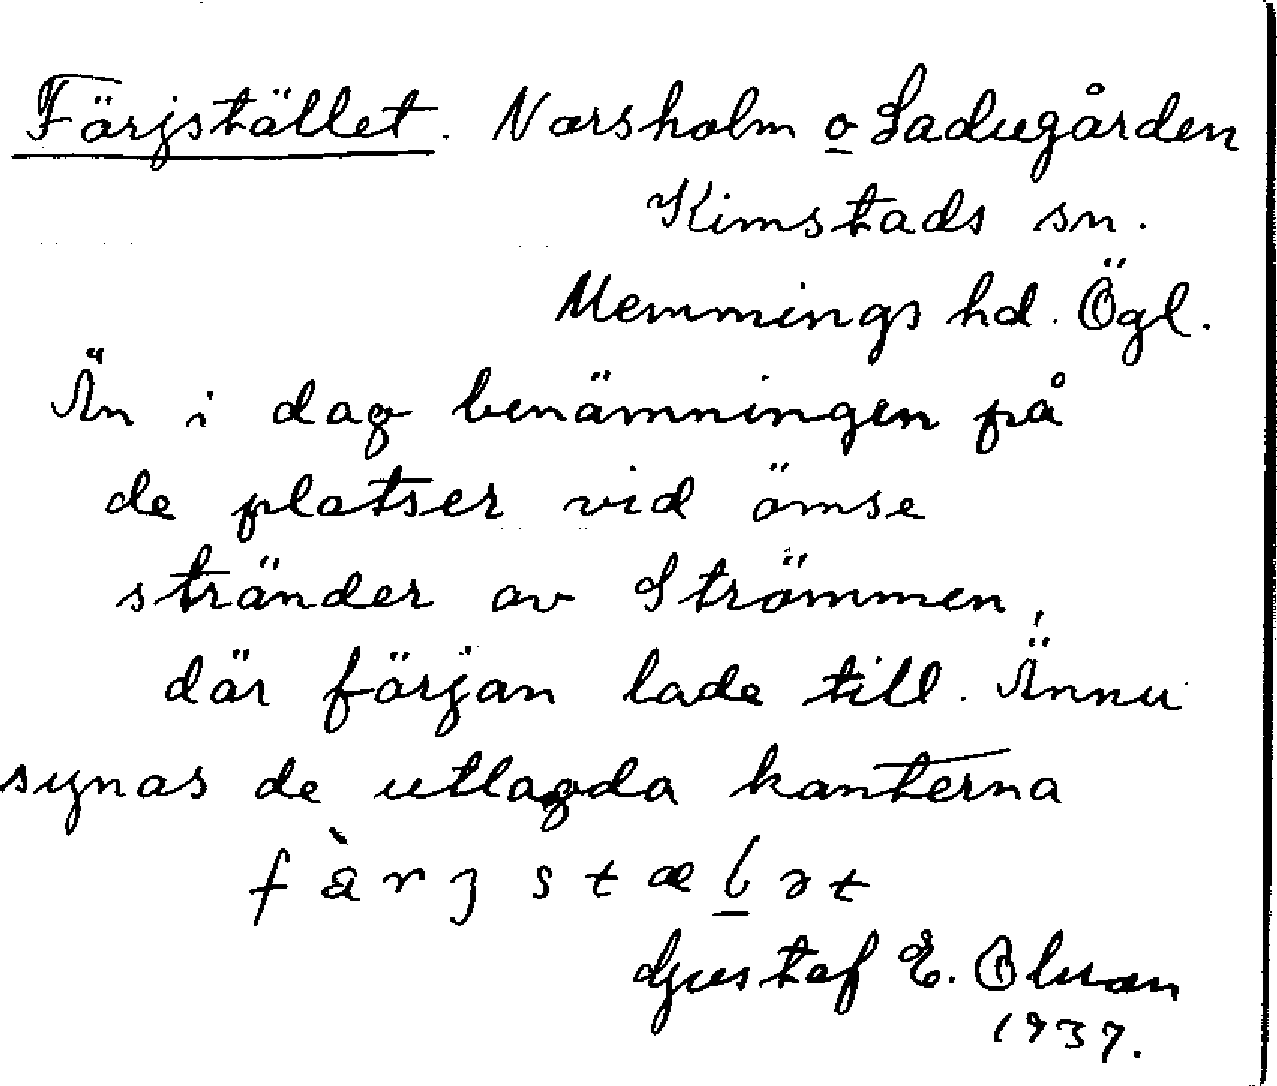 Färjstället. Norsholm o Ladugården
Kimstads sn.
Memmings hd. Ögl.
Än i dag benämningen på
de platser vid ömse
stränder av Strömmen,
där färjan lade till. Ännu
synas de utlagda kanterna
fàrjstælət
Gustaf E. Olsson
1937.